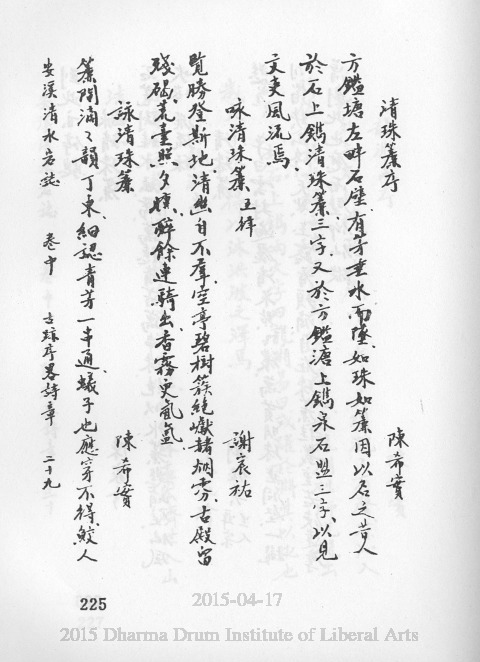 清珠簾序
陳希實
方鑑塘左畔石壁有方垂水而墜如珠如簾因以名之昔人
於石上鐫清珠簾三字又於方鑑溏上鐫泉石盟三字以見
文吏風流焉
咏清珠簾五律
謝宸祐
覽勝登斯地清幽自不羣空亭碧樹簇絕巘赭烟雰古殿留
殘碣荒臺照夕曛醉餘連騎出香霧更氤氳
詠清珠簾
陳希實
簾開滴之韻丁東細認青芳一半通蟻子也應穿不得鮫人
安溪清水岩誌 卷中 古跡序畧詩章 二十九
225
2015-04-17
2015 Dharma Drum Institute of Liberal Arts